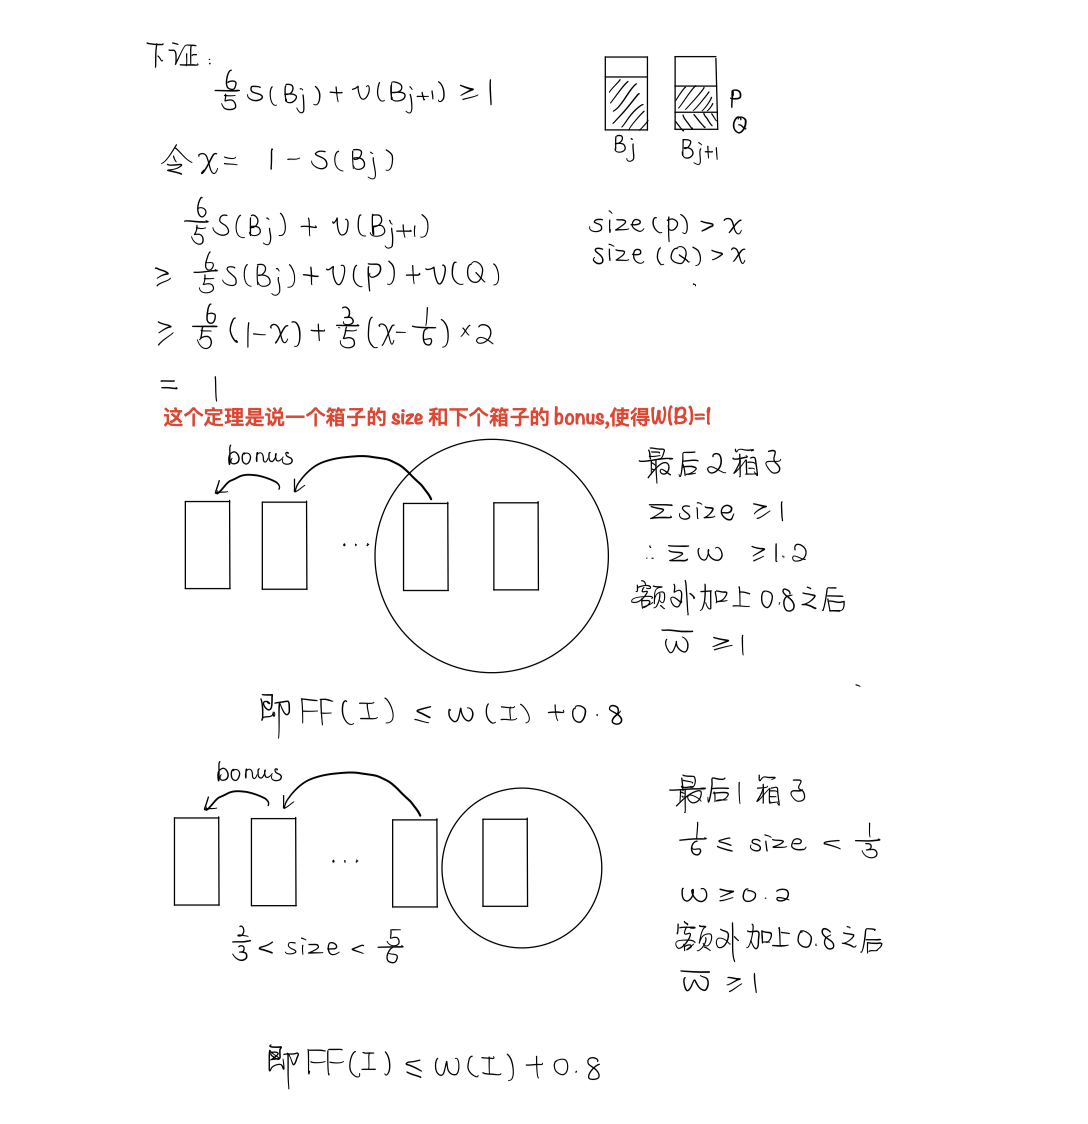 下证:
6/5 S(Bj) + v(Bj+1) ≥ 1
P
Q
Bj
Bj+1
令 x = 1 - S(Bj)
6/5 S(Bj) + v(Bj+1)
size(p) > x
size(Q) > x
≥ 6/5 S(Bj) + v(P) + v(Q)
≥ 6/5 (1-x) + 3/5 (x - 1/6) × 2
= 1
这个定理是说一个箱子的 size 和下个箱子的 bonus,使得W(B)=1
bonus
...
最后2箱子
Σ size ≥ 1
∴ Σ w ≥ 1.2
额外加上0.8之后
w̅ ≥ 1
即 FF(I) ≤ w(I) + 0.8
bonus
...
2/3 < size < 5/6
最后1箱子
1/6 ≤ size < 1/3
w ≥ 0.2
额外加上0.8之后
w̅ ≥ 1
即 FF(I) ≤ w(I) + 0.8